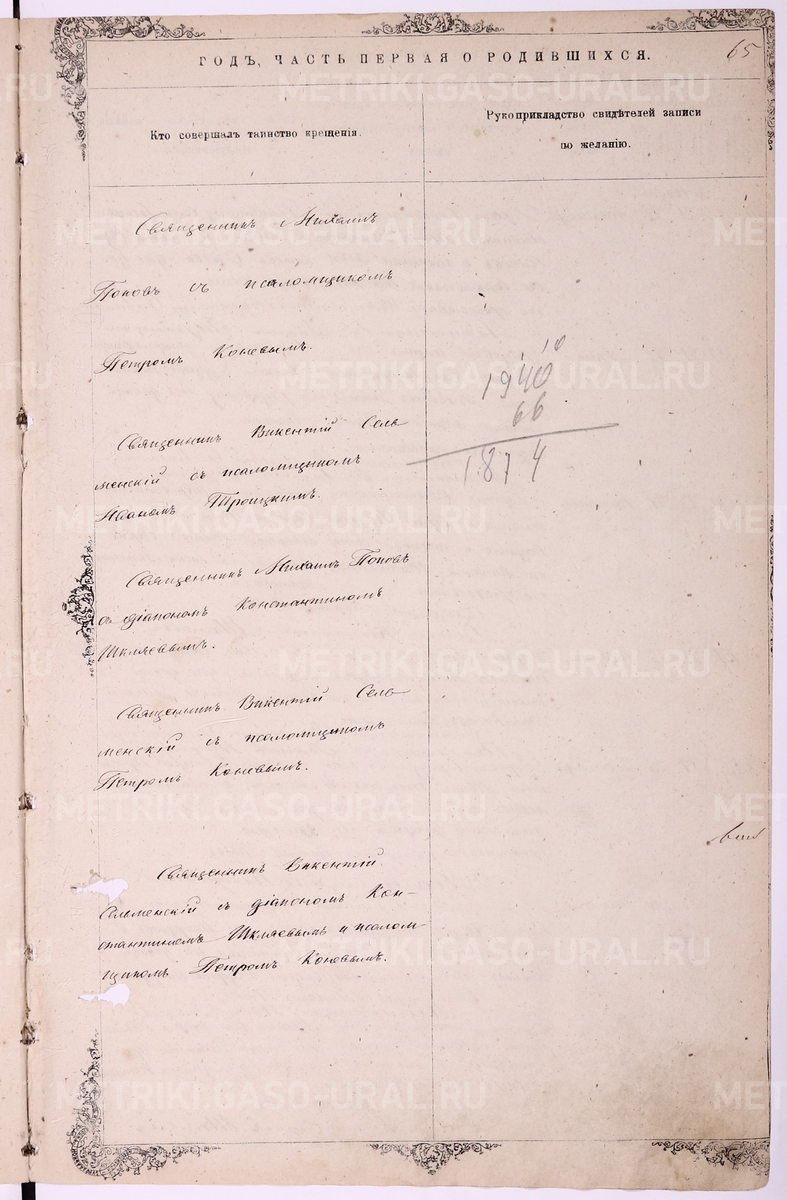 65
ГОДЪ, ЧАСТЬ ПЕРВАЯ О РОДИВШИХСЯ.
Кто совершалъ таинство крещенія.
Рукоприкладство свидѣтелей записи
по желанію.
Священникъ Михаилъ
Поповъ съ псаломщикомъ
Петромъ Коневымъ.
Священникъ Викентій Сель
менскій съ псаломщикомъ
Иваномъ Троицкимъ.
Священникъ Михаилъ Поповъ
съ діакономъ Константиномъ
Шкляевымъ.
Священникъ Викентій Сель
менскій съ псаломщикомъ
Петромъ Коневымъ.
Священникъ Викентій
Сельменскій съ діакономъ Кон-
стантиномъ Шкляевымъ и псалом-
щикомъ Петромъ Коневымъ.
10
1940
66
1874
METRIKI.GASO-URAL.RU